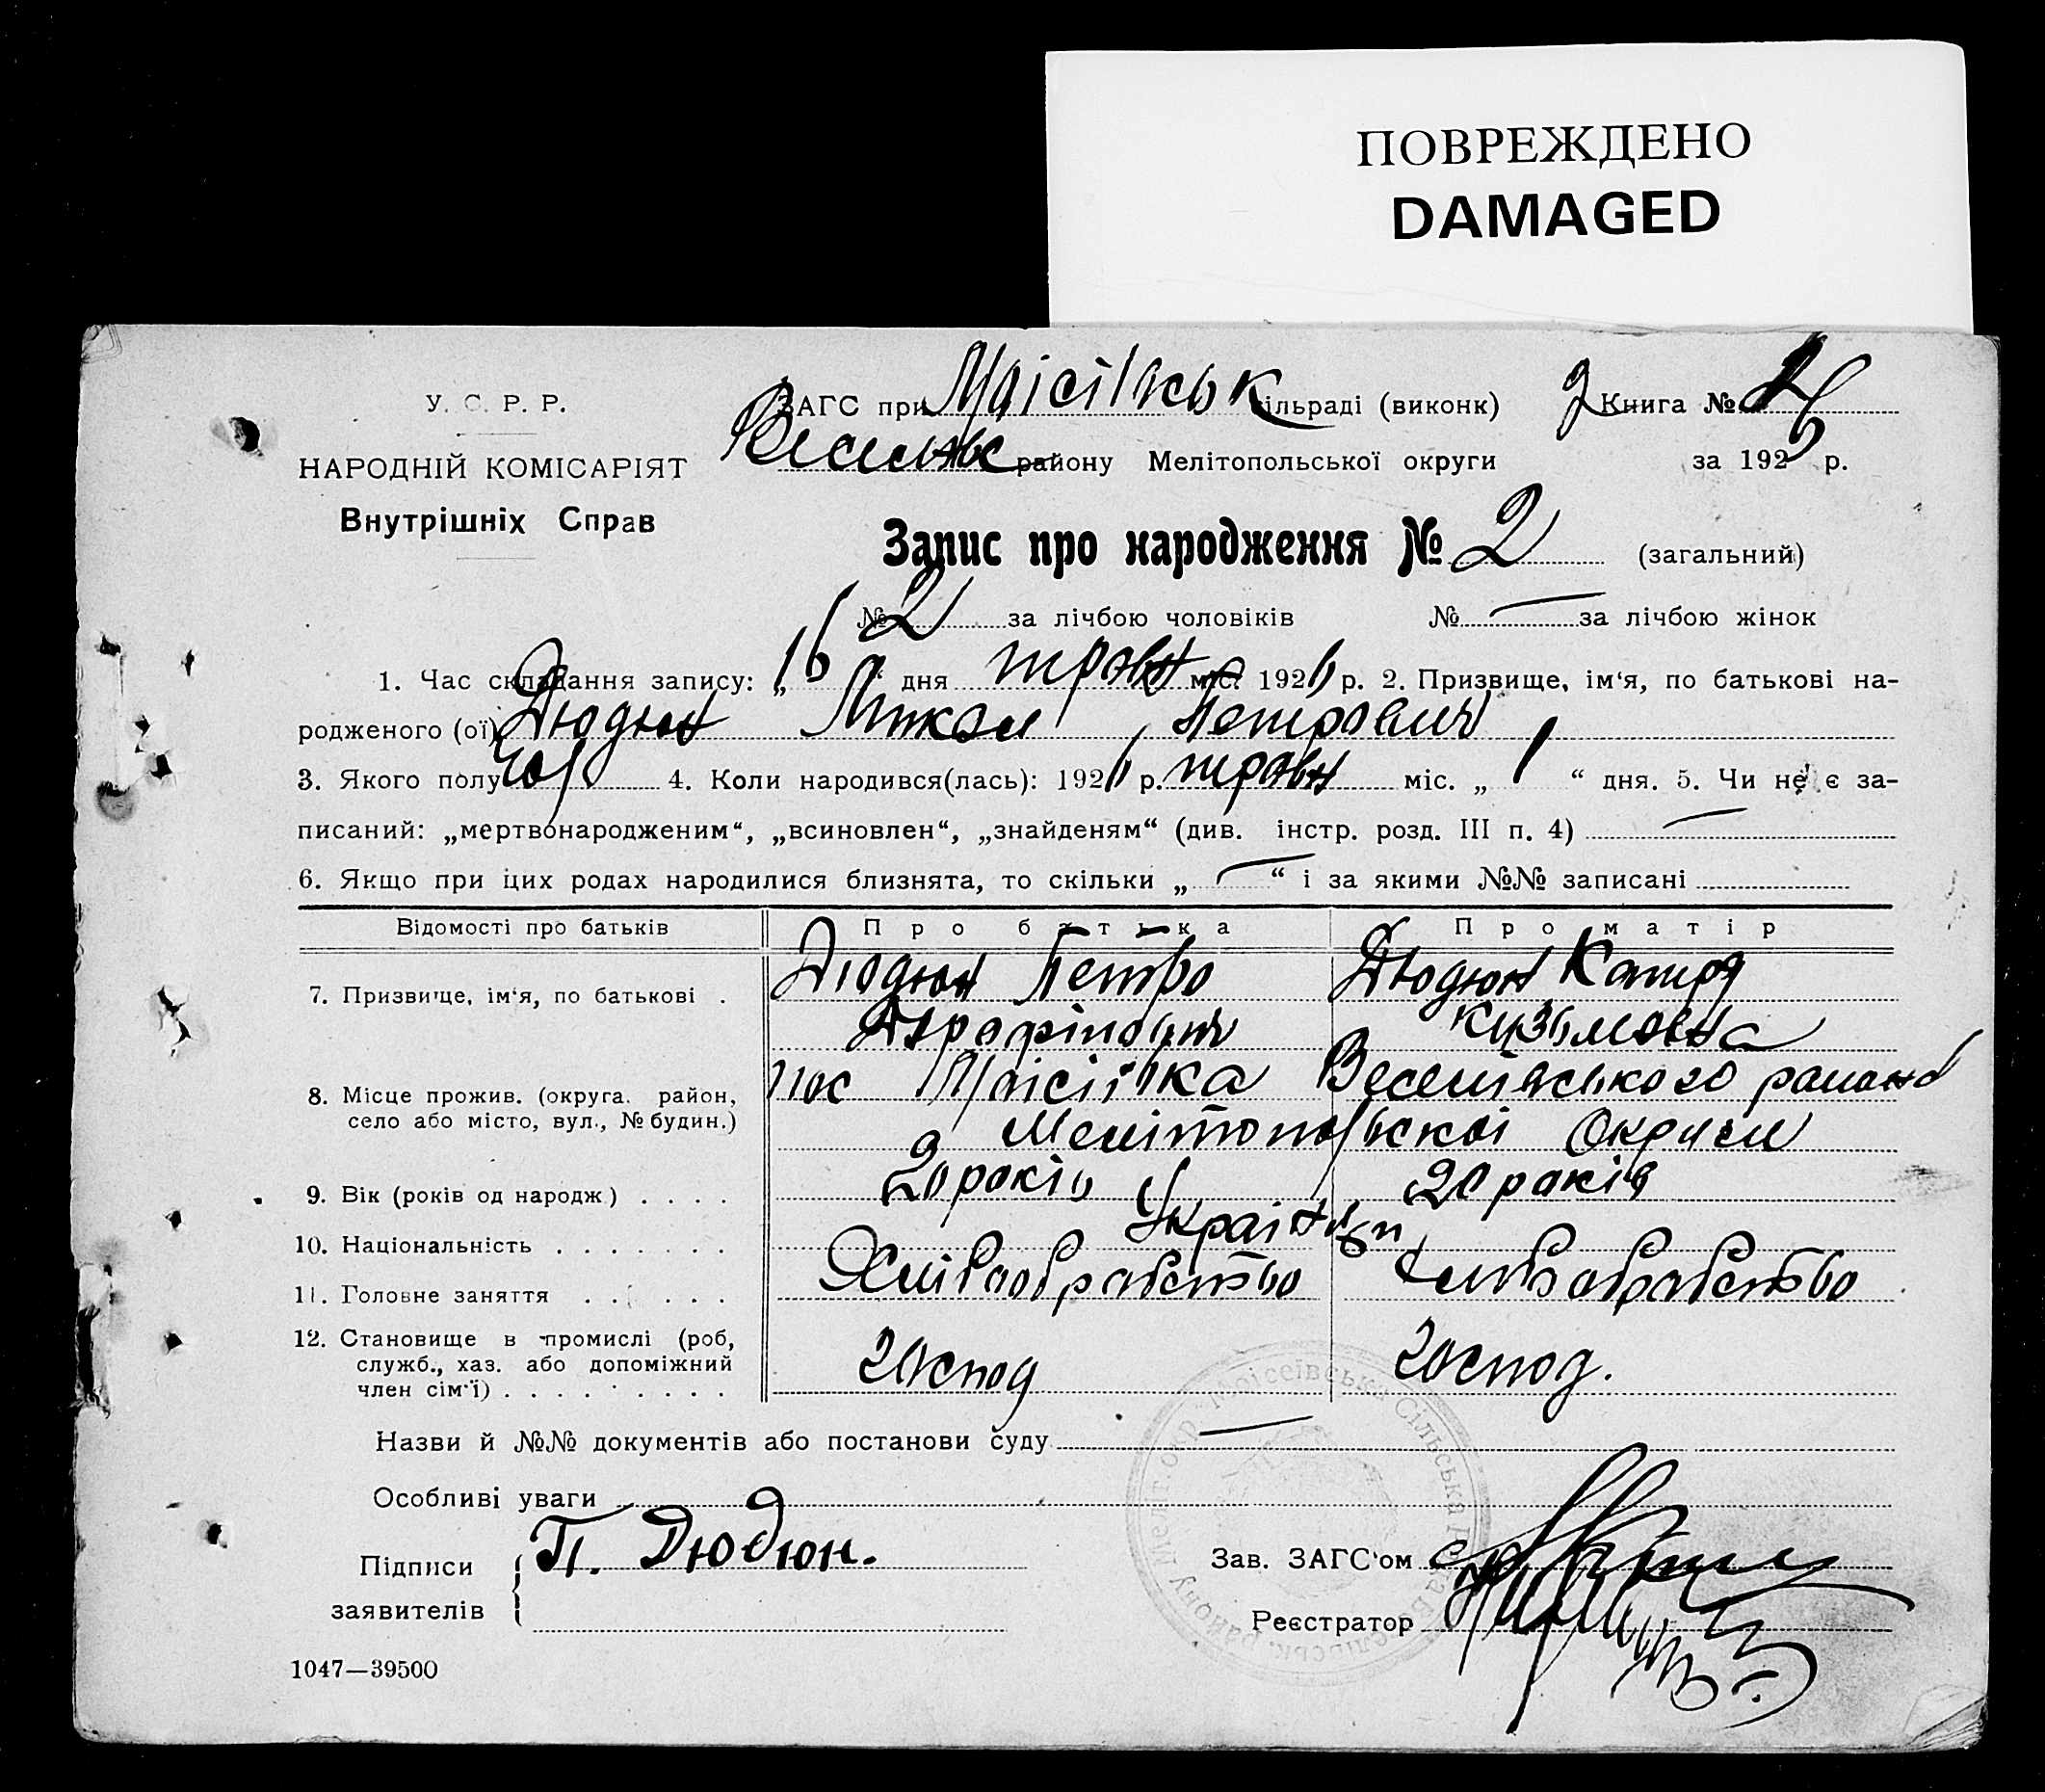 ПОВРЕЖДЕНО
DAMAGED
У. С. Р. Р.
НАРОДНІЙ КОМІСАРІЯТ
Внутрішніх Справ
ЗАГС при Моісіївськ сільраді (виконк) Книга №
Весельс району Мелітопольської округи за 1926 р.
Запис про народження № 2 (загальний)
№ 2 за лічбою чоловіків № — за лічбою жінок
1. Час складання запису: „16“ дня травн міс. 1926 р. 2. Призвище, ім‘я, по батькові на-
родженого (ої) Дюдюн Микол Петрович
3. Якого полу чол 4. Коли народився(лась): 1926 р. травн міс. „1“ дня. 5. Чи не є за-
писаний: „мертвонародженим“, „всиновлен“, „знайденям“ (див. інстр. розд. III п. 4) —
6. Якщо при цих родах народилися близнята, то скільки „—“ і за якими №№ записані
Відомості про батьків Про батька Про матір
7. Призвище, ім‘я, по батькові . Дюдюн Петро Дюдюн Катря
Кузьмовна
8. Місце прожив. (округа. район, село або місто, вул., № будин.) пос Моісіївка Веселівського района
Мелітопольскоі Округи
9. Вік (років од народж) . . . . 20 років 20 років
10. Національність . . . . . . . Украінці
11. Головне заняття . . . . . . Хліборобство Хліборобство
12. Становище в промислі (роб, служб., хаз. або допоміжний член сім‘ї) . . . . . . . . . господ господ.
Назви й №№ документів або постанови суду —
Особливі уваги
Підписи заявителів П. Дюдюн.
Зав. ЗАГС‘ом
Реєстратор
Моісеївська Сільська Рада Весельськ. району Меліт. окр.
1047—39500